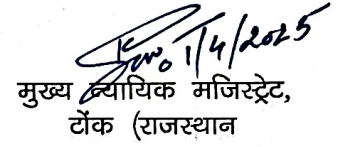 1/4/2025
मुख्य न्यायिक मजिस्ट्रेट,
टोंक (राजस्थान